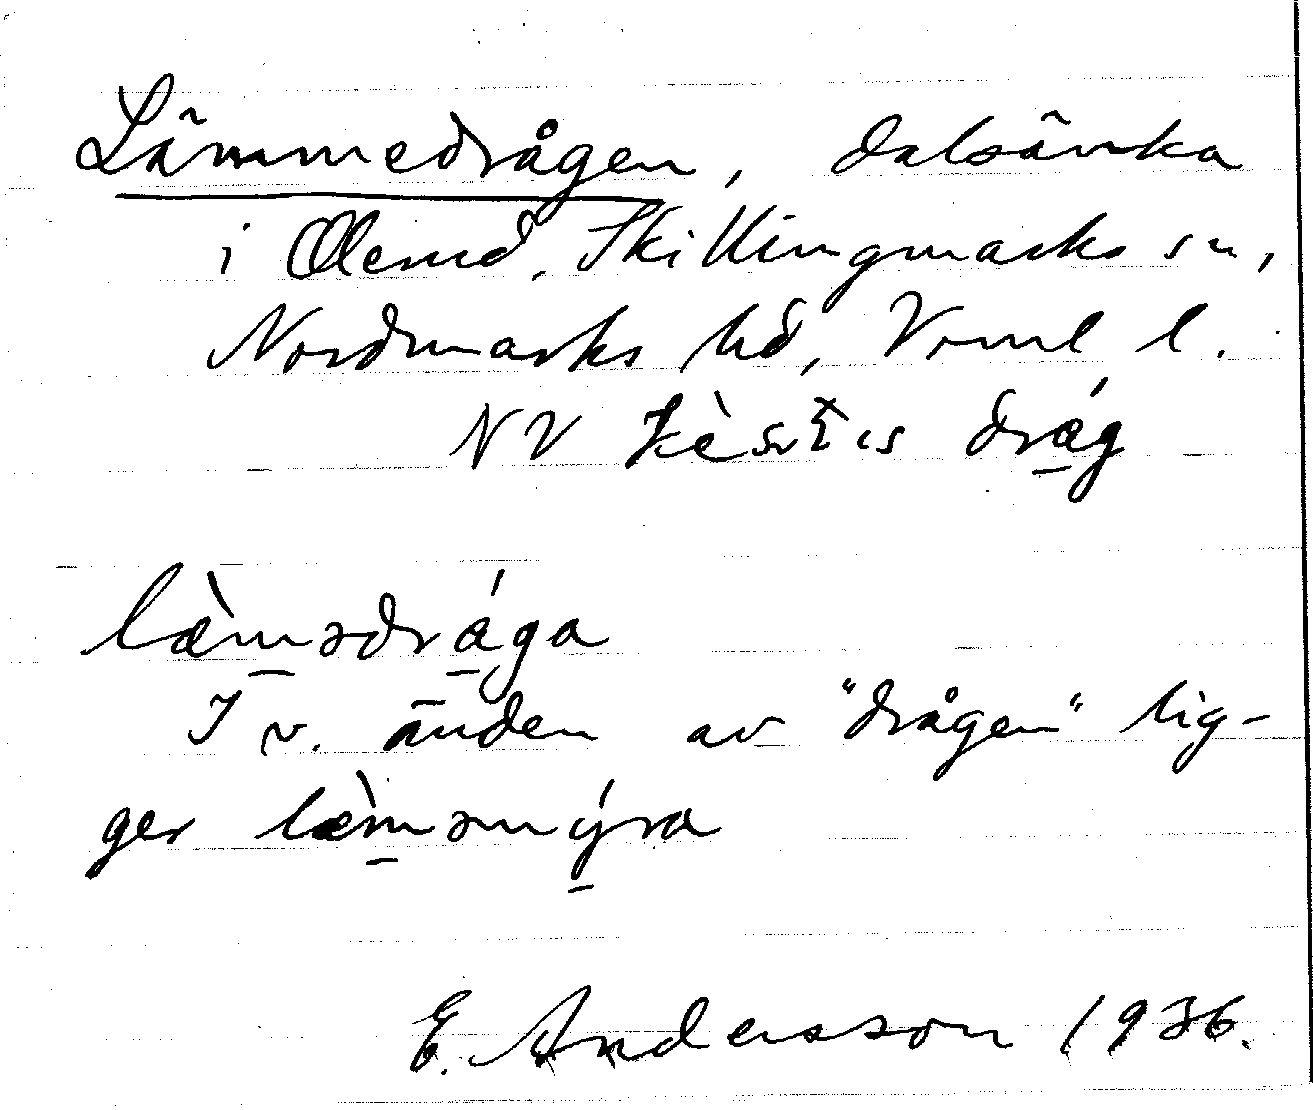 Lämmedrågen, dalsänka
i Ölerud, Skillingmarks sn,
Nordmarks hd, Vrml l.
NV drág
læ̀mədråga
I v. änden av "drågen" lig-
ger læ̀məmýra
E. Andersson 1936.